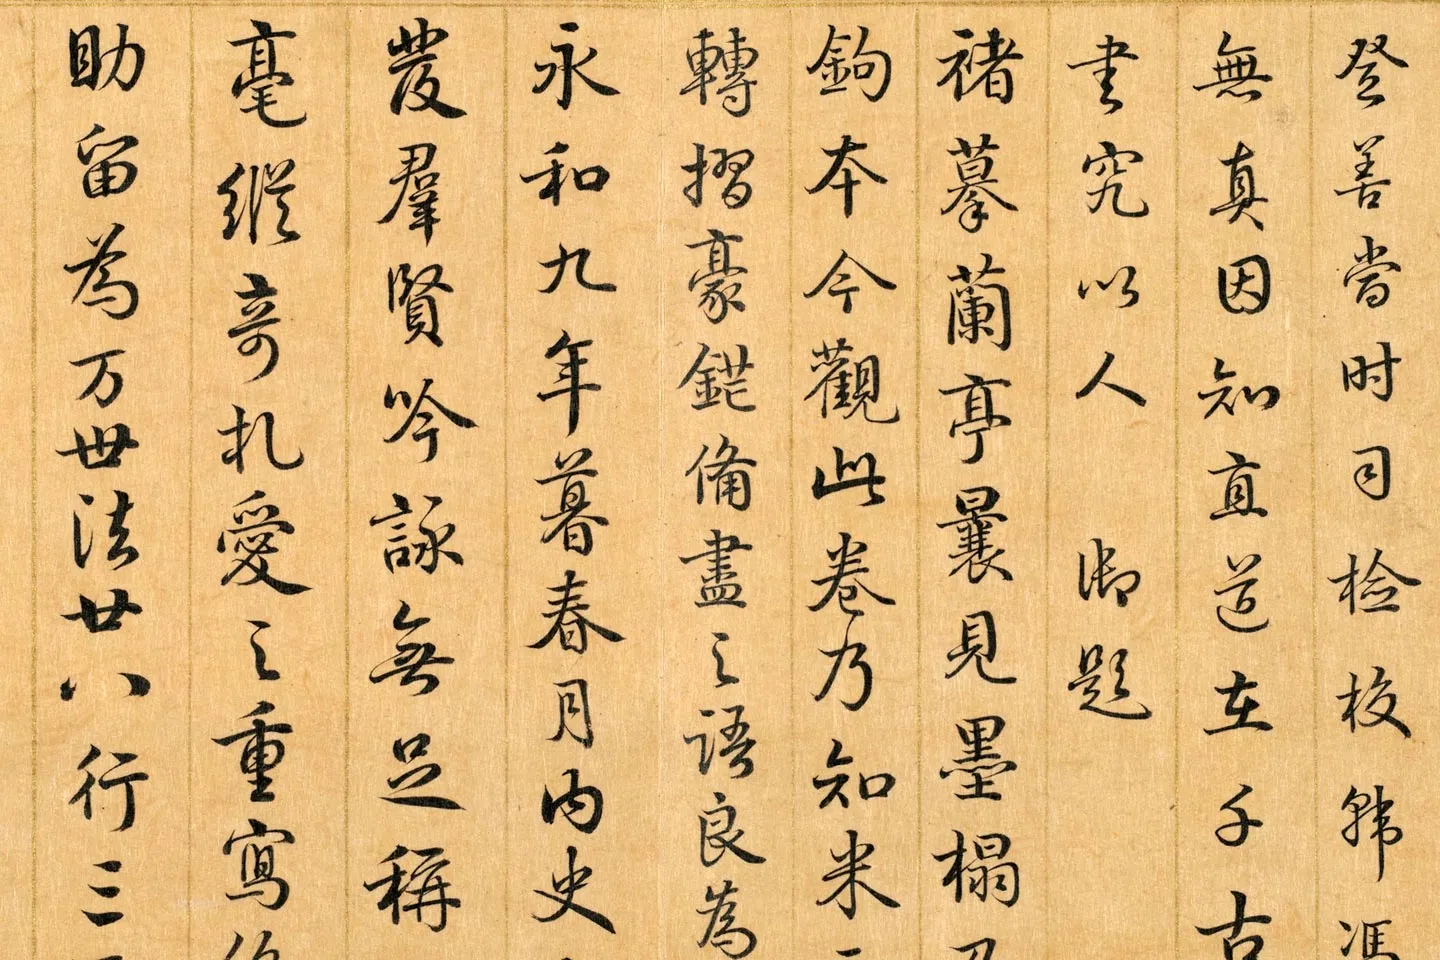 登善當时司检校韩馮
無真因知直道在千古
书究以人 御题
褚摹蘭亭曩見墨榻
鉤本今觀此卷乃知米
轉摺豪鋩備盡之語良為
永和九年暮春月内史
發羣賢吟詠無足稱
亳縱奇札愛之重寫
助留為万世法廿八行三